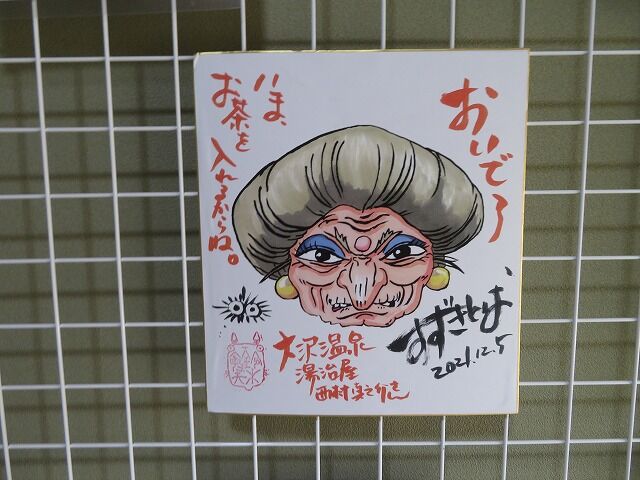 おいでろ
いま、
お茶を
入れるからね。
すずきとよ
2021.12.5
大沢温泉
湯治屋